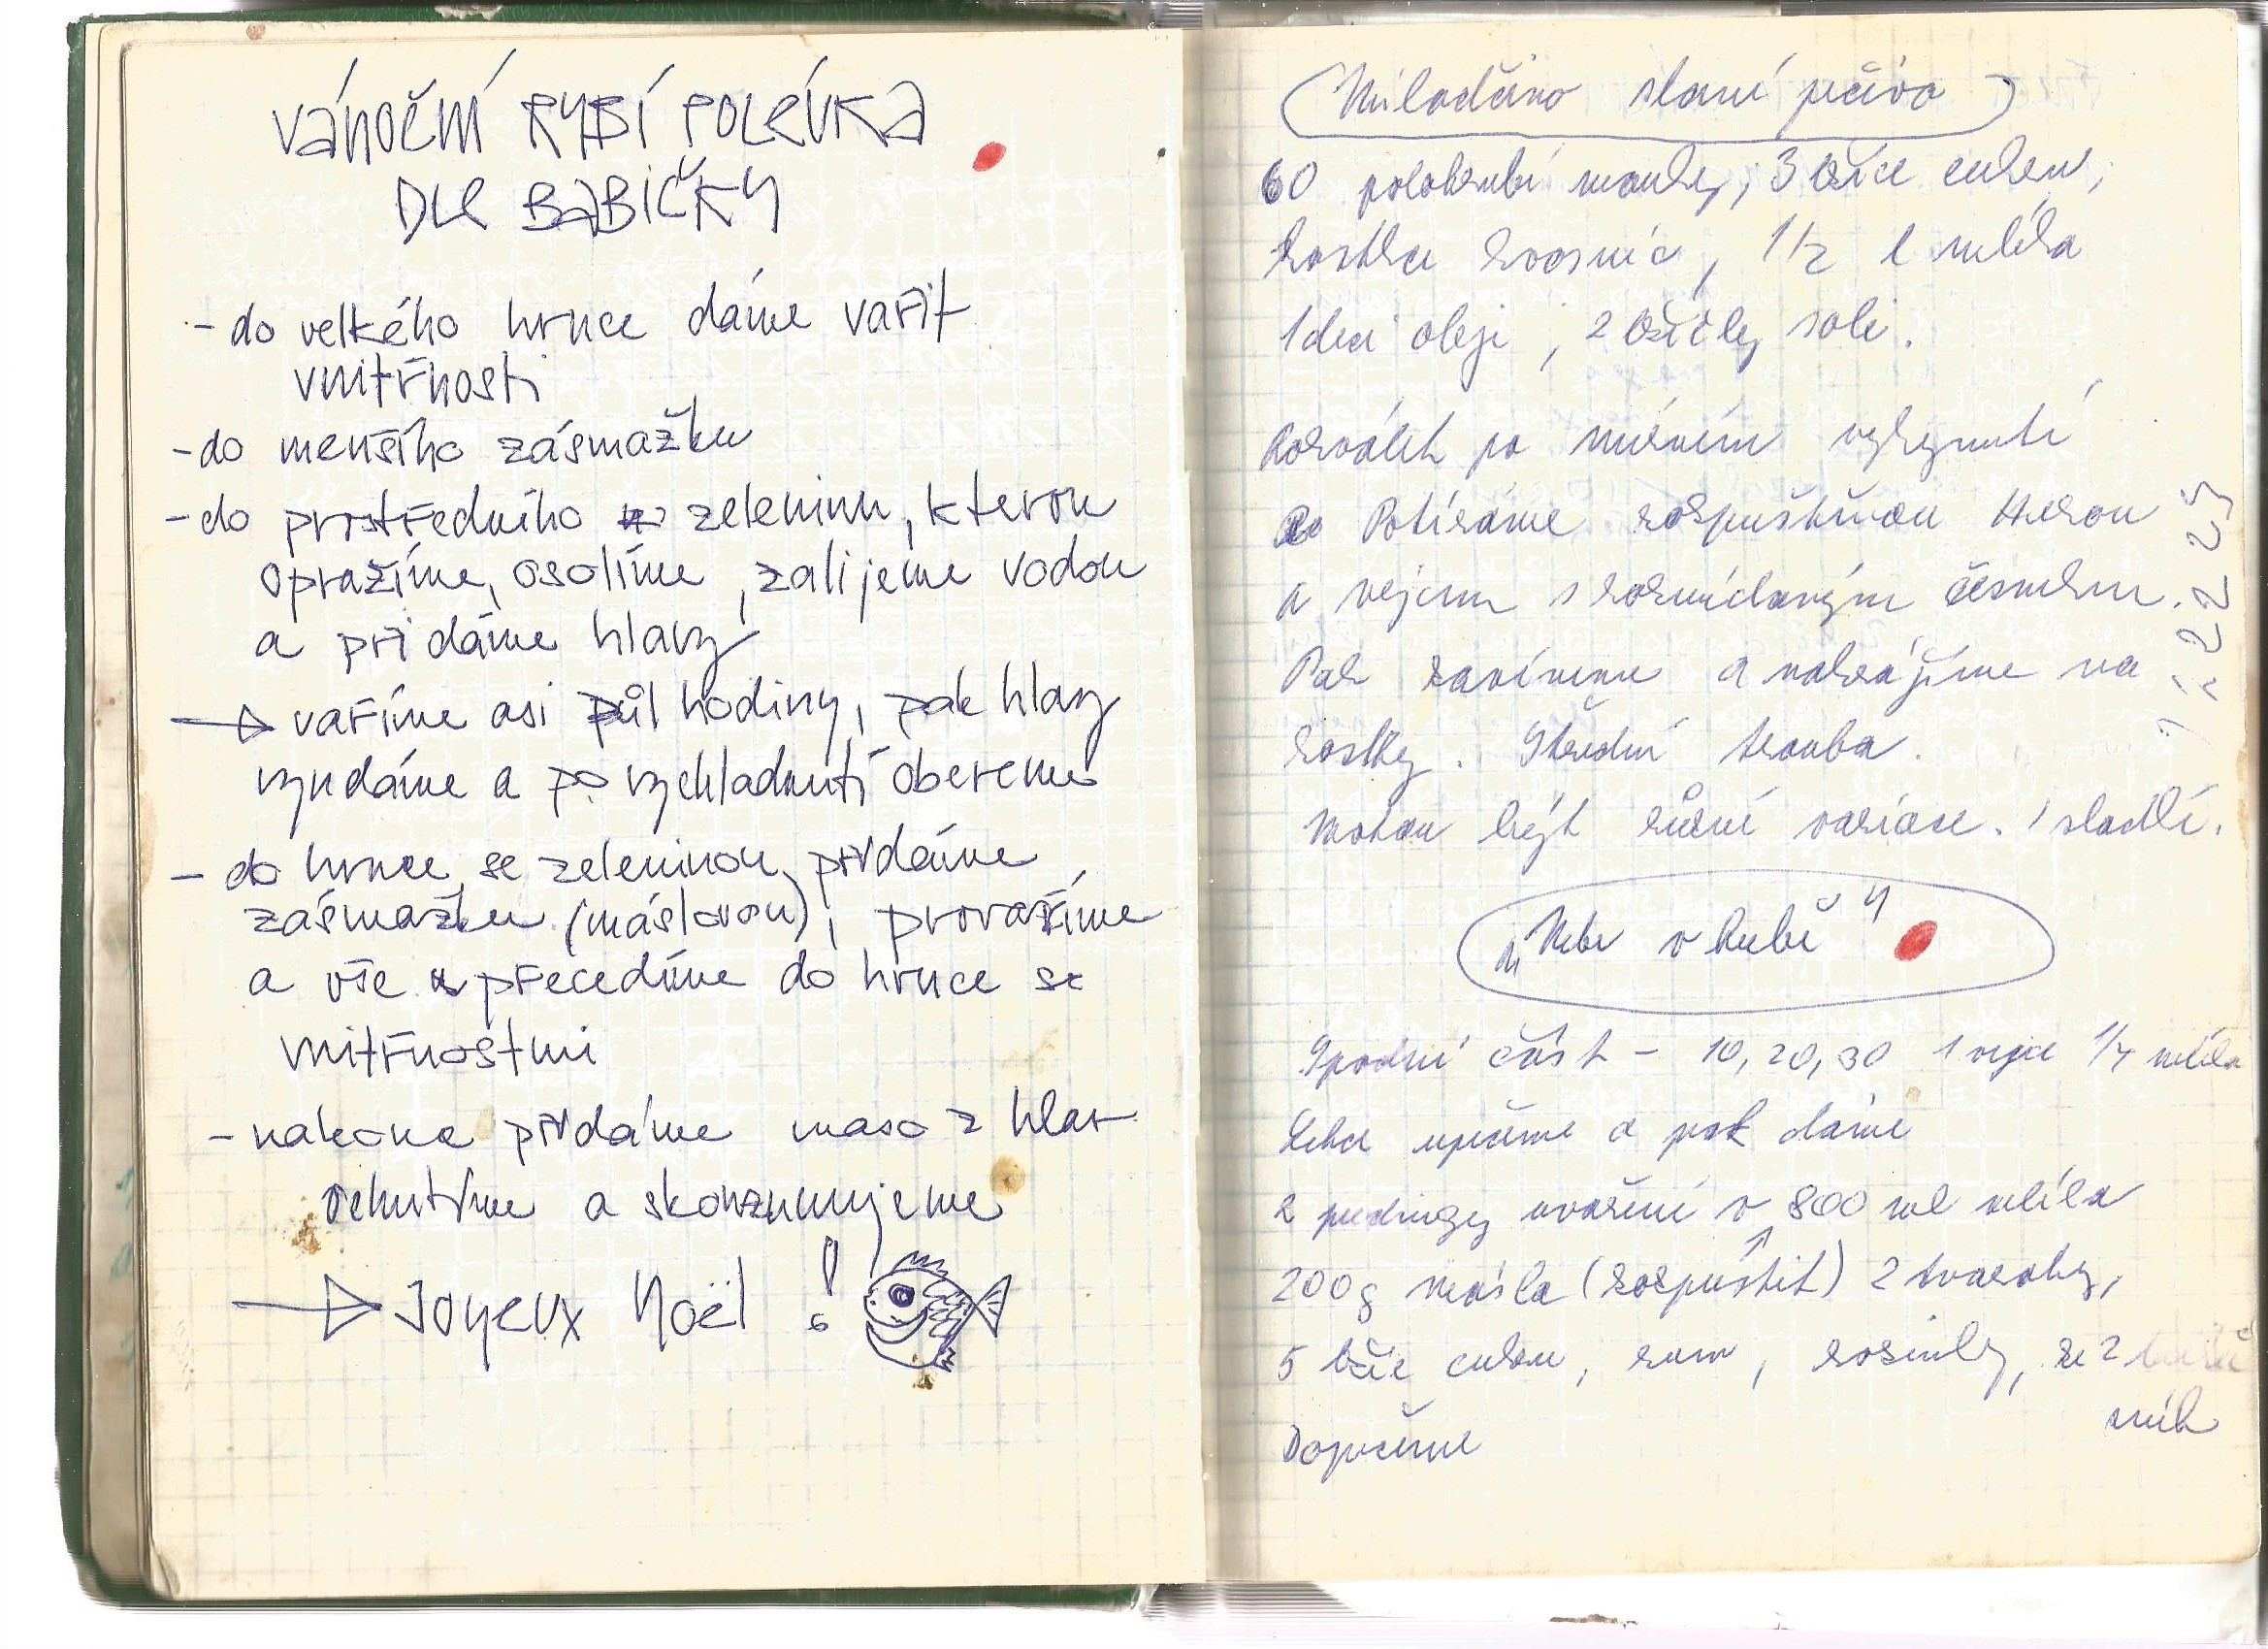 VÁNOČNÍ RYBÍ POLÉVKA
DLE BABIČKY
- do velkého hrnce dáme vařit
vnitřnosti
- do menšího zásmažku
- do prostředního zeleninu, kterou
opražíme, osolíme, zalijeme vodou
a přidáme hlavy
→ vaříme asi půl hodiny, pak hlavy
vyndáme a po vychladnutí obereme
- do hrnce se zeleninou přidáme
zásmažku (máslovou), provaříme
a vše přecedíme do hrnce se
vnitřnostmi
- nakonec přidáme maso z hlav
ochutíme a skonzumujeme
→ Joyeux Noël !
Miladčino slaní pečivo
60 polohrubí mouky, 3 lžíce cukru,
kostka kvasnic, 1/2 l mlíka
1 deci oleje, 2 lžičky soli.
Rozválet po mírním vykynutí
Potíráme rozpuštěnou Herou
a vejcem s rozmíchaným česnekem.
Pak zavineme a nakrájíme na
kostky. Střední trouba.
Mohou být různí variace. I sladkí.
„Nebe v hubě"
Spodní část - 10, 20, 30 1 vejce 1/4 mlíka
Lehce upečeme a pak dáme
2 pudingy uvaření v 800 ml mlíka
200g másla (rozpustit) 2 tvarohy,
5 lžic cukru, rum, rozinky, ze 2
sníh
Dopečeme